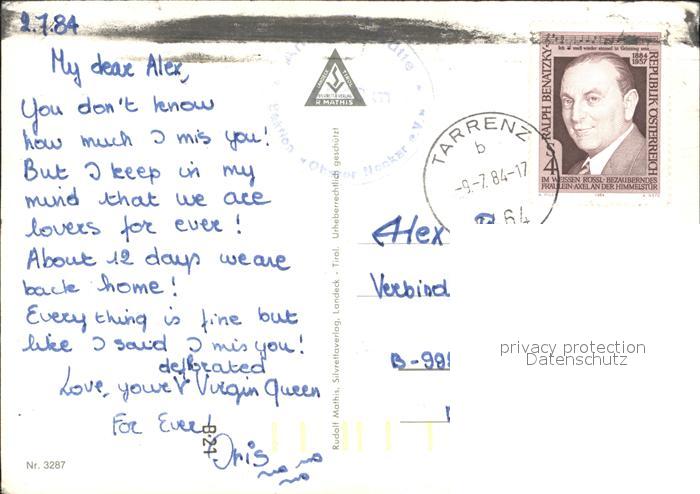 2.7.84
My dear Alex,
You don't know
how much I miss you!
But I keep in my
mind that we are
lovers for ever!
About 12 days we are
back home!
Everything is fine but
like I said I miss you!
deflorated
Love, your Virgin Queen
For Ever!
Iris
B-24
Nr. 3287
R. MATHIS
Rudolf Mathis, Silvrettaverlag, Landeck - Tirol. Urheberrechtlich geschützt
TARRENZ
b
-9.-7.84-17
64
RALPH BENATZKY
1884
1957
REPUBLIK ÖSTERREICH
S 4
IM WEISSEN RÖSSL·BEZAUBERNDES
FRÄULEIN·AXEL AN DER HIMMELSTÜR
Alex
Verbind
B-99
privacy protection
Datenschutz